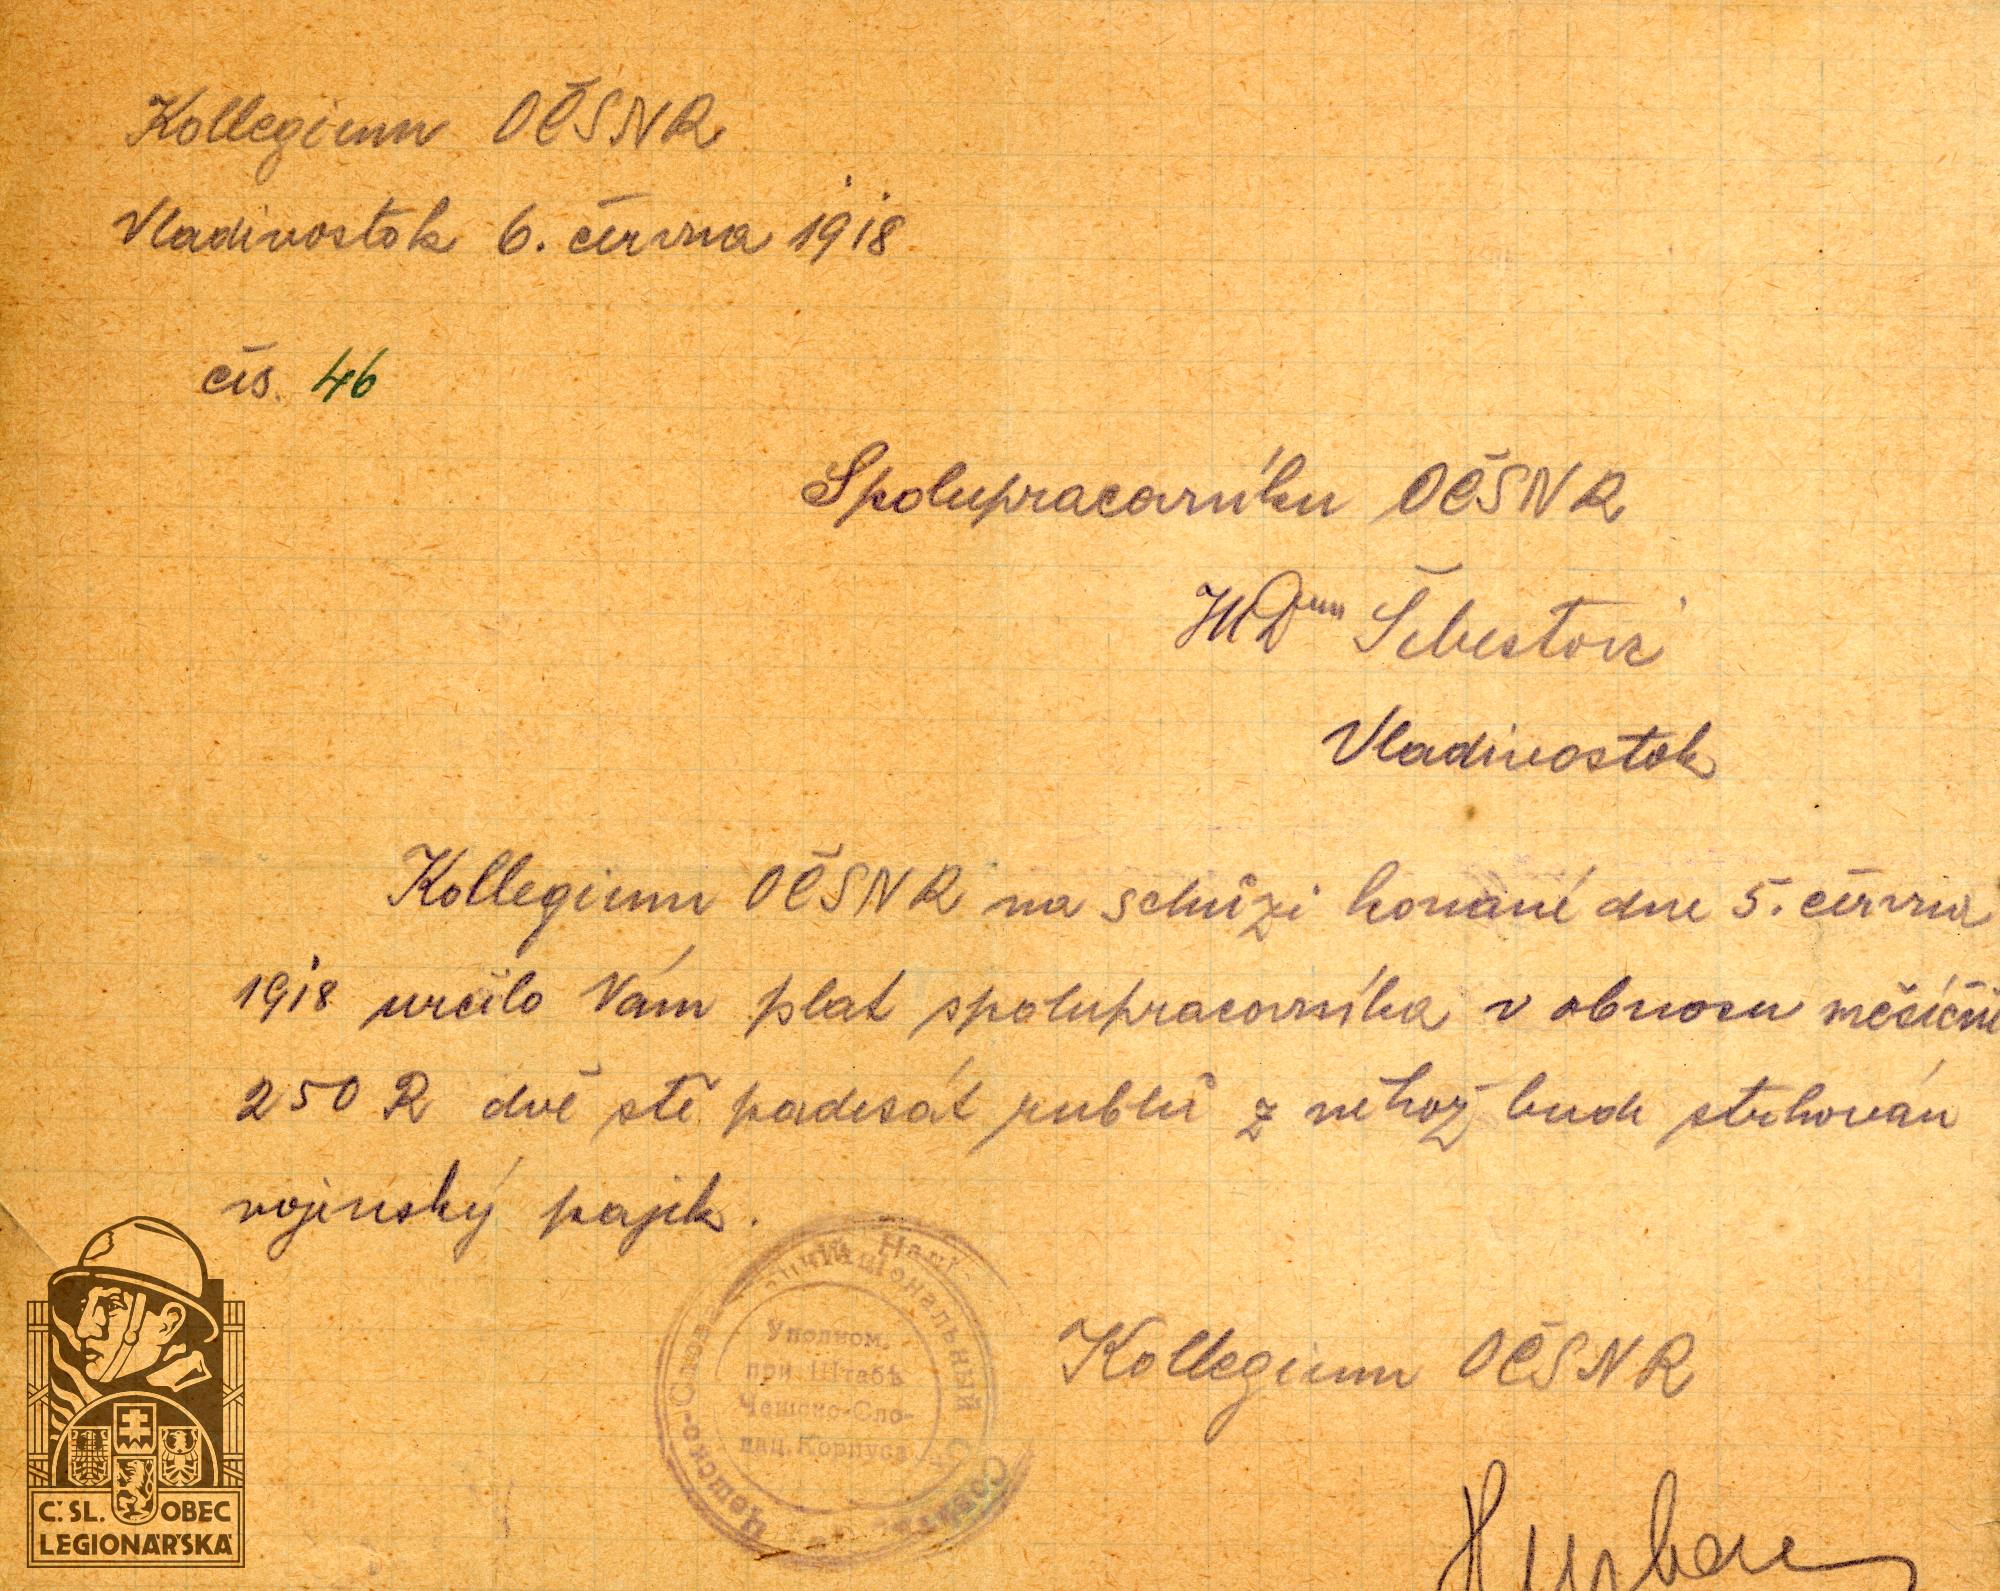 Kollegium OČSNR
Vladivostok 6. června 1918
čís. 46
Spolupracovníku OČSNR
Šebestovi
Vladivostok
Kollegium OČSNR na schůzi konané dne 5. června
1918 určilo Vám plat spolupracovníka v obnosu měsíčně
250 R dvě stě padesát rublů z něhož bude strhován
vojenský pajek.
Чешско-Слов
Національный Совѣтъ
Уполном.
при Штабѣ
Чешско-Сло-
вац. Корпуса
Kollegium OČSNR
Hurban
Č. SL. OBEC
LEGIONÁŘSKÁ